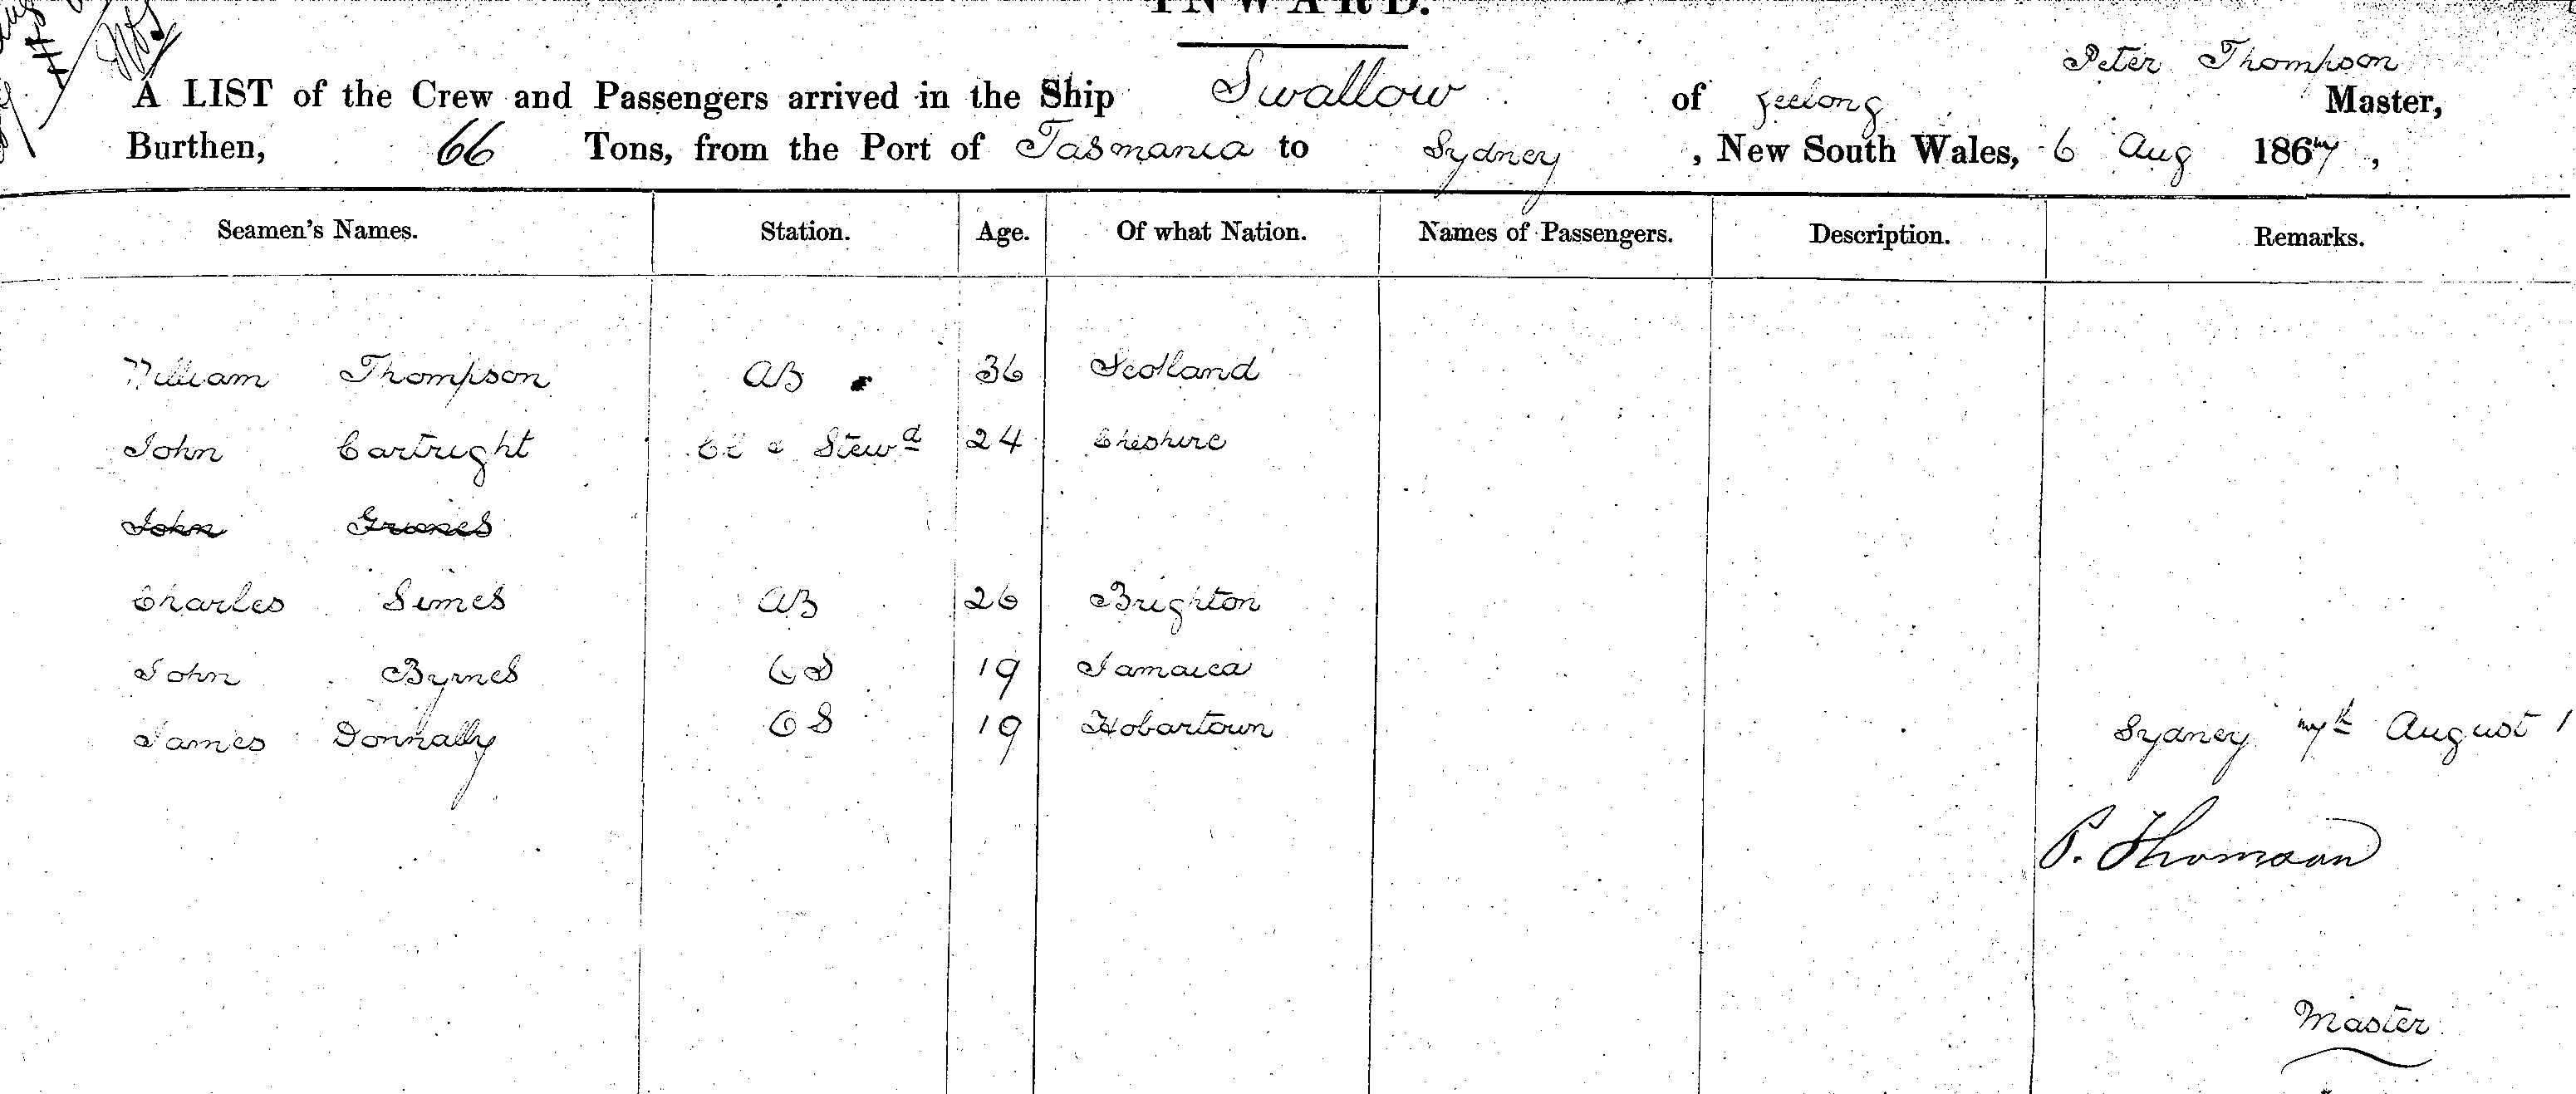 INWARD.
Peter Thompson
A LIST of the Crew and Passengers arrived in the Ship Swallow of Geelong Master,
Burthen, 66 Tons, from the Port of Tasmania to Sydney, New South Wales, 6 Aug 1867,
Seamen's Names. Station. Age. Of what Nation. Names of Passengers. Description. Remarks.
William Thompson AB 36 Scotland
John Cartright & Stewd 24 Cheshire
John
Charles Simes AB 26 Brighton
John Byrnes OS 19 Jamaica
James Donnally OS 19 Hobartown
Sydney 7th August 1
P. Thomson
Master